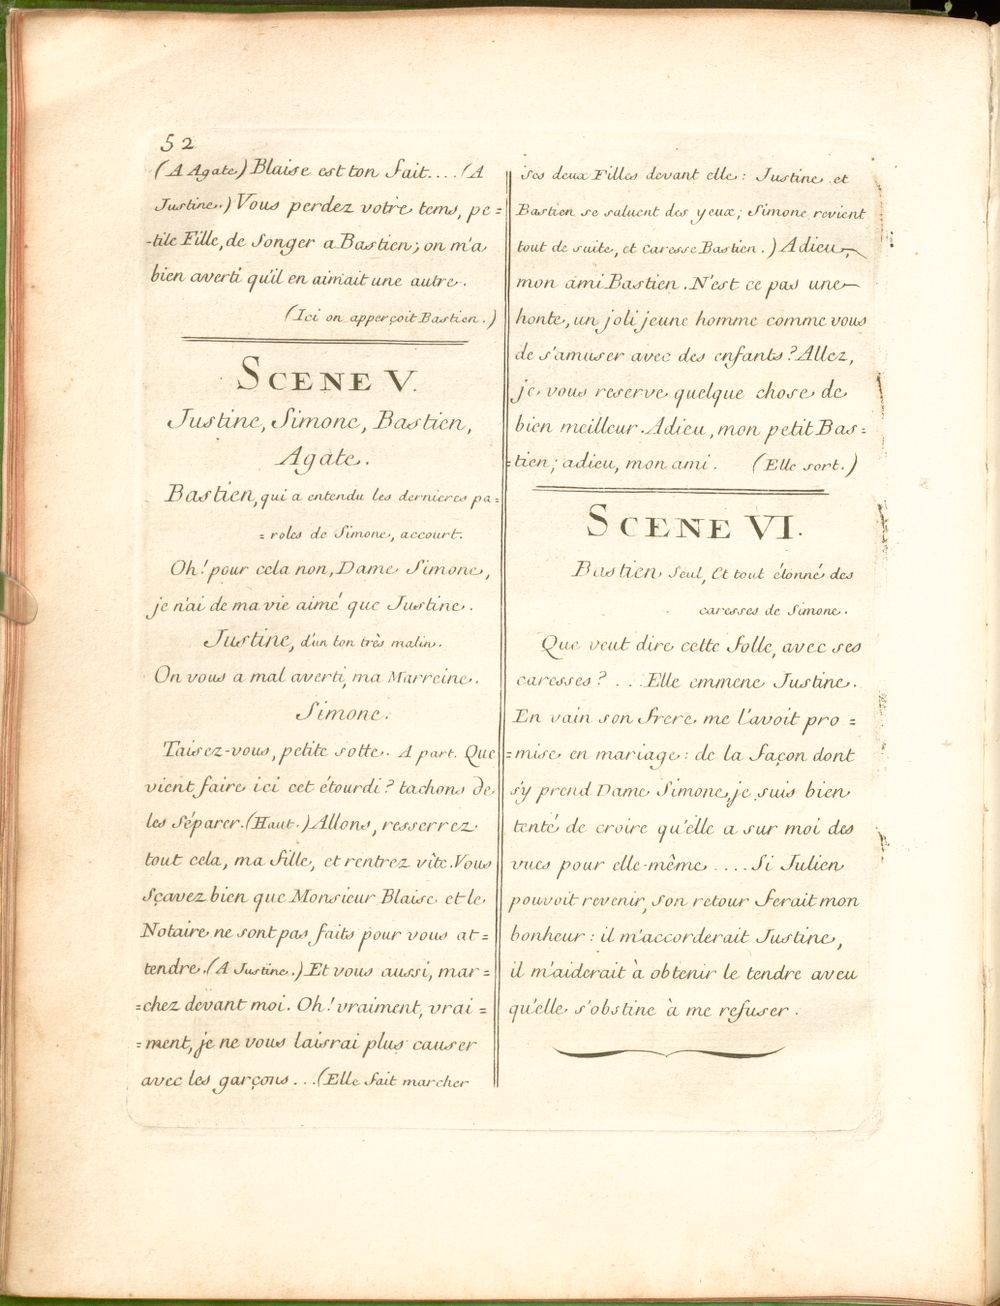 52
(A Agate) Blaise est ton fait.... (A
Justine.) Vous perdez votre tems, pe=
-tite Fille, de Songer a Bastien; on m'a
bien averti qu'il en aimait une autre.
(Ici on apperçoit Bastien.)
SCENE V.
Justine, Simone, Bastien,
Agate.
Bastien, qui a entendu les dernieres pa=
=roles de Simone, accourt.
Oh! pour cela non, Dame Simone,
je n'ai de ma vie aimé que Justine.
Justine, d'un ton très malin.
On vous a mal averti, ma Marreine.
Simone.
Taisez-vous, petite sotte. A part. Que
vient faire ici cet étourdi? tachons de
les séparer. (Haut.) Allons, resserrez
tout cela, ma fille, et rentrez vite. Vous
Sçavez bien que Monsieur Blaise et le
Notaire ne sont pas faits pour vous at=
tendre. (A Justine.) Et vous aussi, mar=
=chez devant moi. Oh! vraiment, vrai=
=ment, je ne vous laisrai plus causer
avec les garçons... (Elle fait marcher
ses deux Filles devant elle: Justine et
Bastien se saluent des yeux; Simone revient
tout de suite, et caresse Bastien.) Adieu,
mon ami Bastien. N'est ce pas une
honte, un joli jeune homme comme vous
de s'amuser avec des enfants? Allez,
je vous reserve quelque chose de
bien meilleur. Adieu, mon petit Bas=
=tien; adieu, mon ami. (Elle sort.)
SCENE VI.
Bastien Seul, Et tout étonné des
caresses de Simone.
Que veut dire cette folle, avec ses
caresses? ... Elle emmene Justine.
En vain son frere me l'avoit pro=
=mise en mariage: de la façon dont
s'y prend Dame Simone, je suis bien
tenté de croire qu'elle a sur moi des
vues pour elle-même .... Si Julien
pouvoit revenir, son retour ferait mon
bonheur: il m'accorderait Justine,
il m'aiderait à obtenir le tendre aveu
qu'elle s'obstine à me refuser.